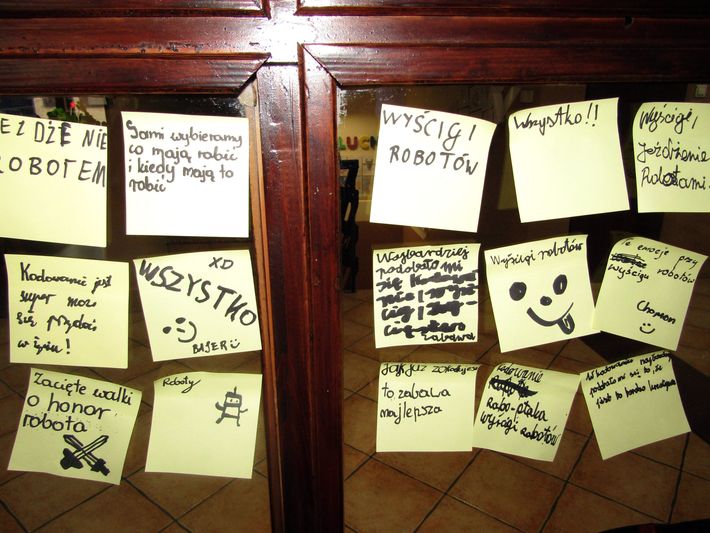 EŹDŻENIE
ROBOTEM
Sami wybieramy
co mają robić
i kiedy mają to
robić
WYŚCIGI
ROBOTÓW
Wszystko!!
Wyścigi
Jeżdżenie
Robotami.
Kodowanie jest
super może
się przydać
w życiu!
XD
WSZYSTKO
BAJER
Najbardziej
podobało mi
się
zabawa
Wyścigi robotów
Te emocje przy
Wyścigu robotów
Chomon
Zacięte walki
o honor
robota
Roboty
Jak już
to zabawa
najlepsza
Kodowanie
Robo-ptaka
wyścigi robotów
W kodowaniu najbardziej
podobało mi się to, że
jest to bardzo